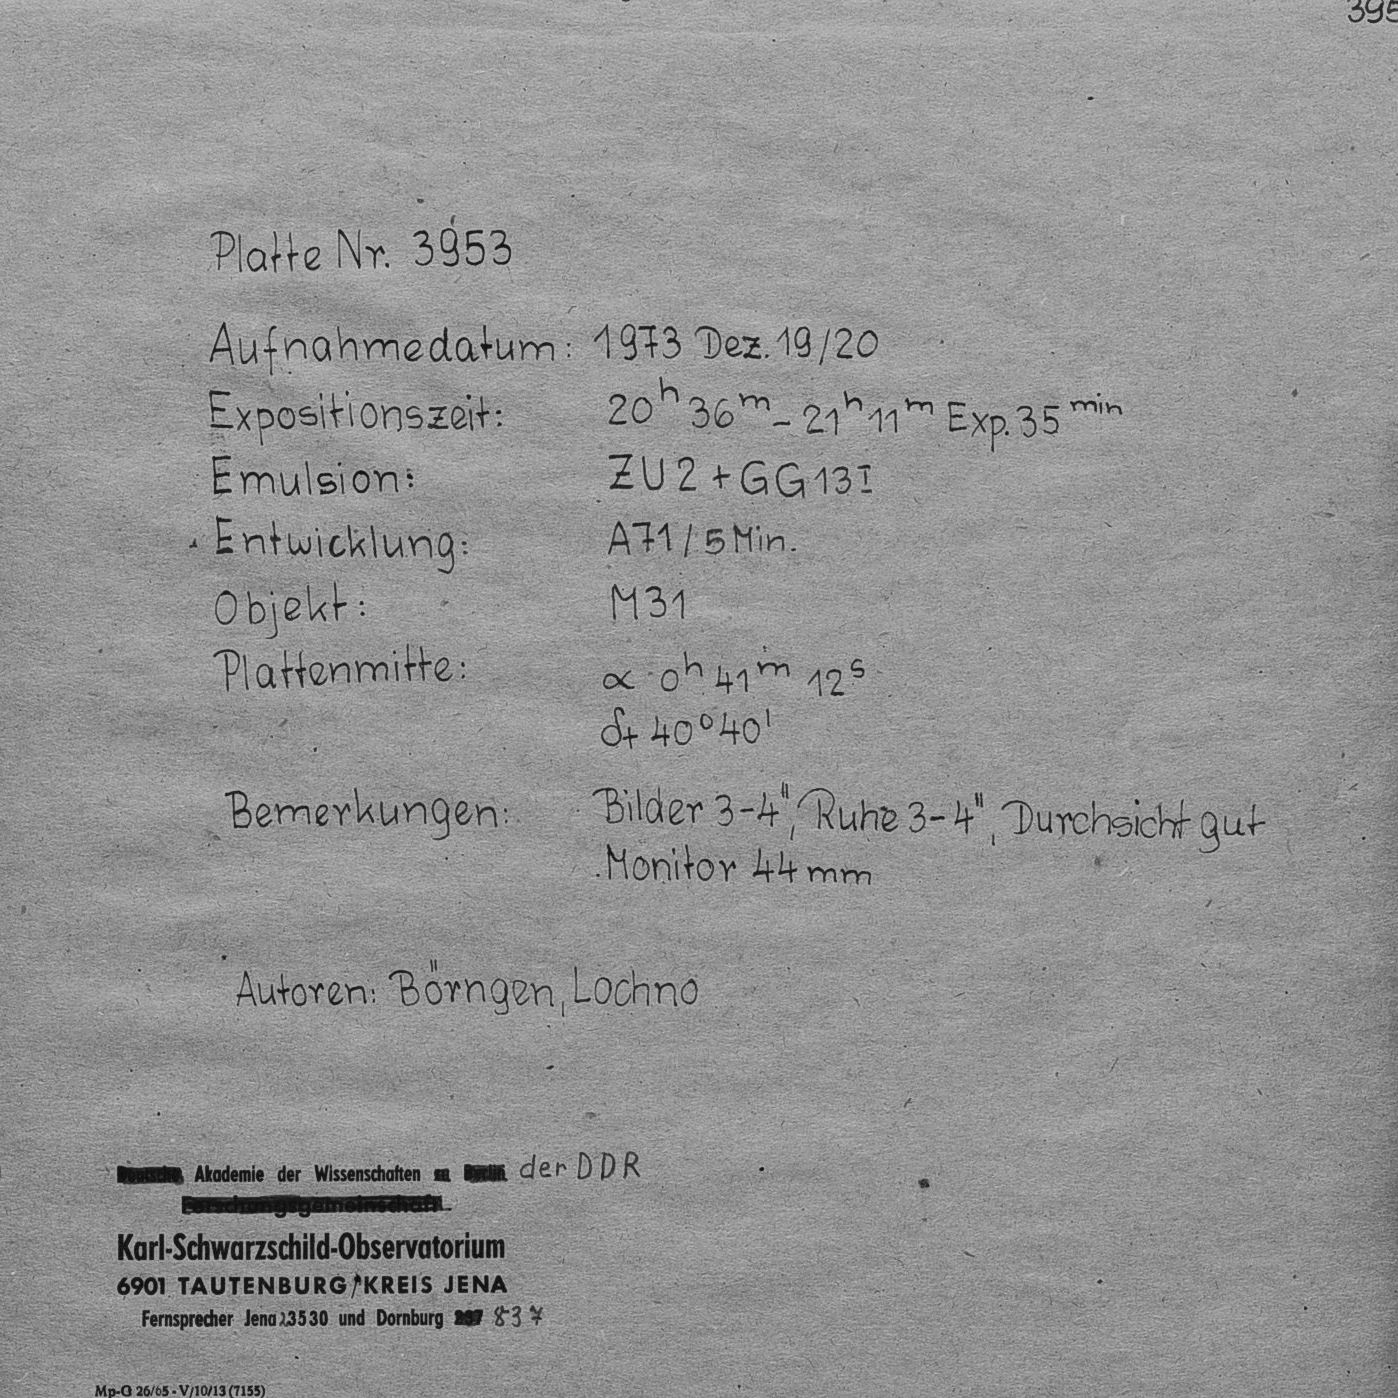 395
Platte Nr. 3953
Aufnahmedatum: 1973 Dez. 19/20
Expositionszeit: 20h 36m - 21h 11m Exp. 35 min
Emulsion: ZU2 + GG13I
Entwicklung: A71/5 Min.
Objekt: M31
Plattenmitte: α 0h 41m 12s
δ+ 40°40'
Bemerkungen: Bilder 3-4", Ruhe 3-4", Durchsicht gut
Monitor 44 mm
Autoren: Börngen, Lochno
Deutsche Akademie der Wissenschaften zu Berlin der DDR
Forschungsgemeinschaft
Karl-Schwarzschild-Observatorium
6901 TAUTENBURG/KREIS JENA
Fernsprecher Jena 23530 und Dornburg 837
Mp-G 26/65 - V/10/13 (7155)